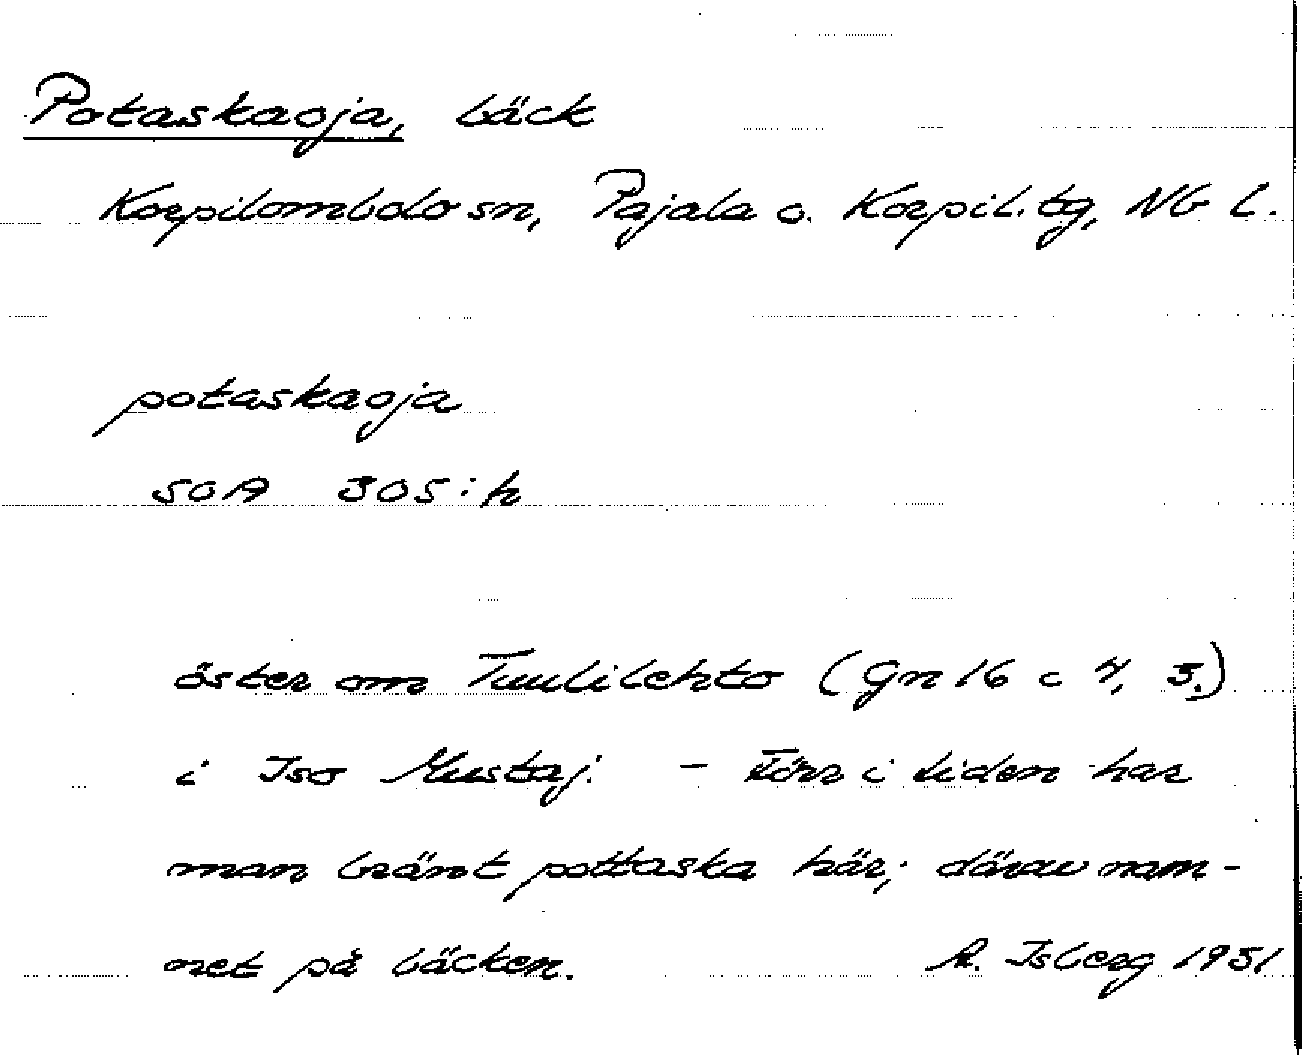 Potaskaoja, bäck
Korpilombolo sn, Pajala o. Korpil. tg, Nb l.
potaskaoja
SOA 305:h
öster om Tuulilehto (Gn 16 c 4, 3.)
i Iso Mustaj. - Förr i tiden har
man bränt pottaska här; därav nam-
net på bäcken. A. Isberg 1951